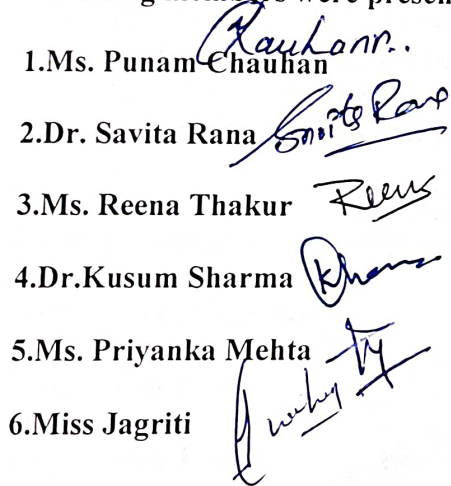 members were present
1.Ms. Punam Chauhan Chauhan..
2.Dr. Savita Rana Savita Rana
3.Ms. Reena Thakur Reena
4.Dr.Kusum Sharma
5.Ms. Priyanka Mehta
6.Miss Jagriti